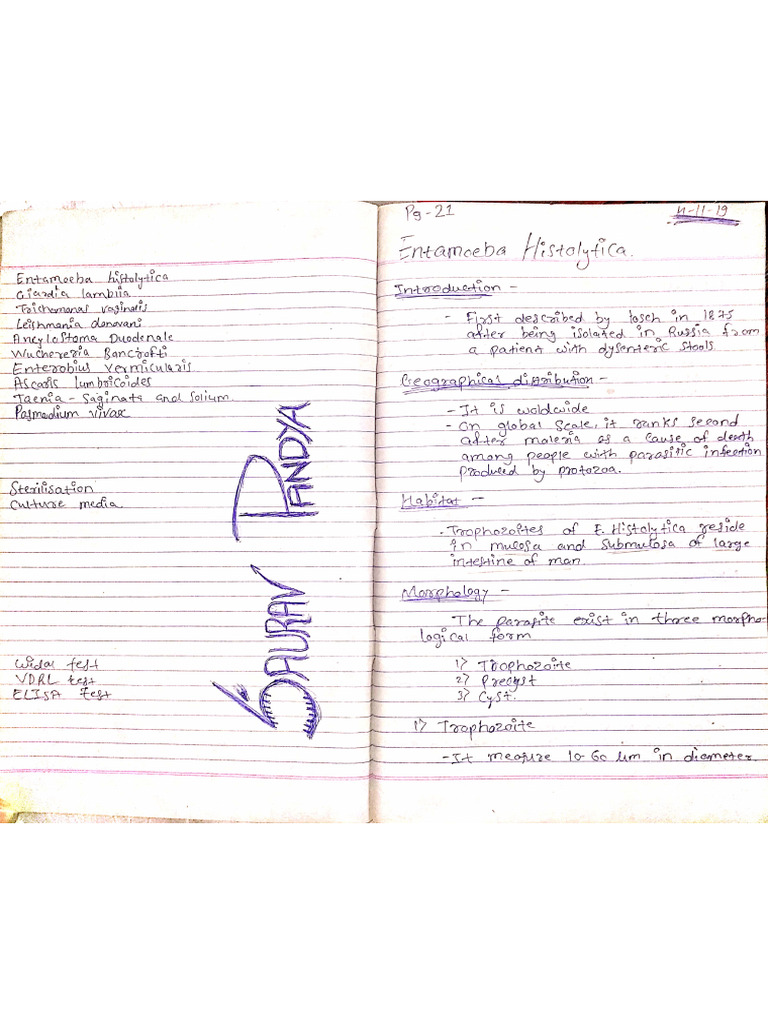 Entamoeba histolytica
Giardia lamblia
Trichomonas vaginalis
Leishmania donovani
Ancylostoma Duodenale
Wuchereria Bancrofti
Enterobius Vermicularis
Ascaris Lumbricoides
Taenia - Saginata and Solium.
Pasmedium vivax
Sterilisation
Culture media
Widal test
VDRL test
ELISA test
SAURAV PANDYA
Pg-21
11-19
Entamoeba Histolytica.
Introduction -
- First described by losch in 1875
after being isolated in Russia from
a patient with dysenteric stools
Geographical distribution -
- It is woldwide
- On global scale, it ranks second
after maleria as a cause of death
among people with parasitic infection
produced by protozoa.
Habitat -
- Trophozoites of E. Histolytica reside
in mucosa and submutosa of large
intestine of man.
Morphology -
- The parasite exist in three morpho-
logical form
1) Trophozoite
2) Precyst
3) Cyst.
1) Trophozoite
- It measure 10-60 µm in diameter.